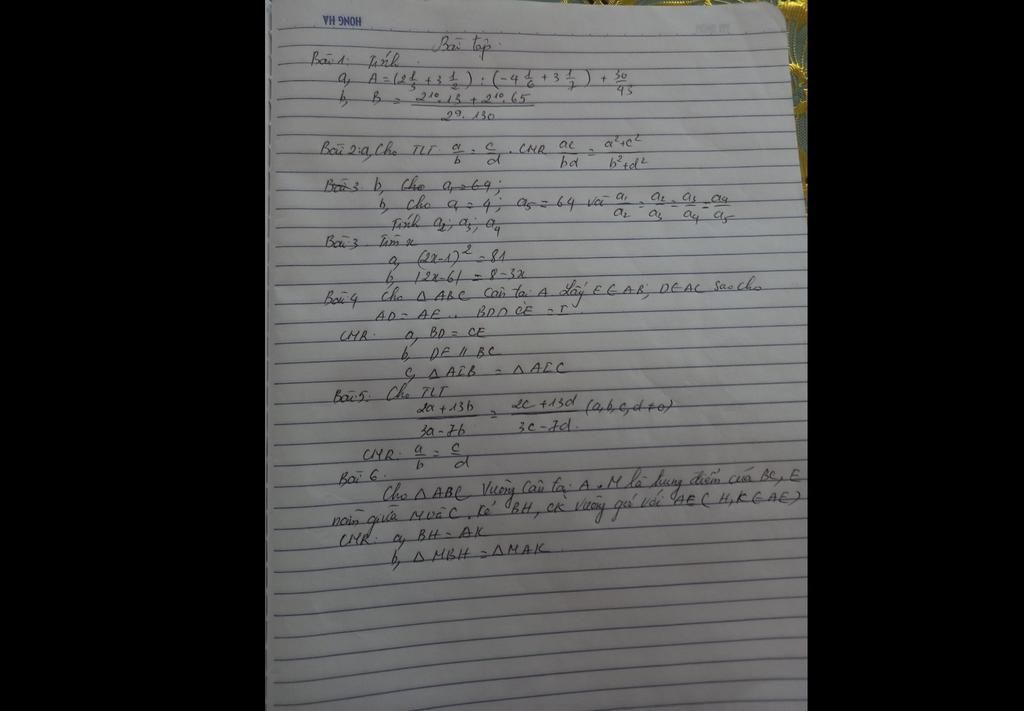 HONG HA
Bài tập
Bài 1: Tính
a, A = (2 1/3 + 3 1/2) : (-4 1/6 + 3 1/7) + 30/43
b, B = (2^10 . 13 + 2^10 . 65) / (2^9 . 130)
Bài 2: a, Cho TLT a/b = c/d . CMR ac/bd = (a^2+c^2)/(b^2+d^2)
Bài 3 b, Cho a1 = 64;
b, Cho a1 = 4; a5 = 64 và a1/a2 = a2/a3 = a3/a4 = a4/a5
Tính a2; a3; a4
Bài 3. Tìm x
a, (2x-1)^2 = 81
b, |2x-6| = 8-3x
Bài 4 Cho △ABC Cân tại A Lấy E∈AB, D∈AC sao cho
AD = AE. BD∩CE = I
CMR: a, BD = CE
b, DE // BC
c, △AIB = △AIC
Bài 5: Cho TLT
(2a+13b)/(3a-7b) = (2c+13d)/(3c-7d) (a,b,c,d ≠ 0)
CMR: a/b = c/d
Bài 6.
Cho △ABC Vuông Cân tại A. M là trung điểm của BC, E
nằm giữa M và C. Kẻ BH, CK vuông góc với AE (H, K ∈ AE)
CMR: a, BH = AK
b, △MBH = △MAK